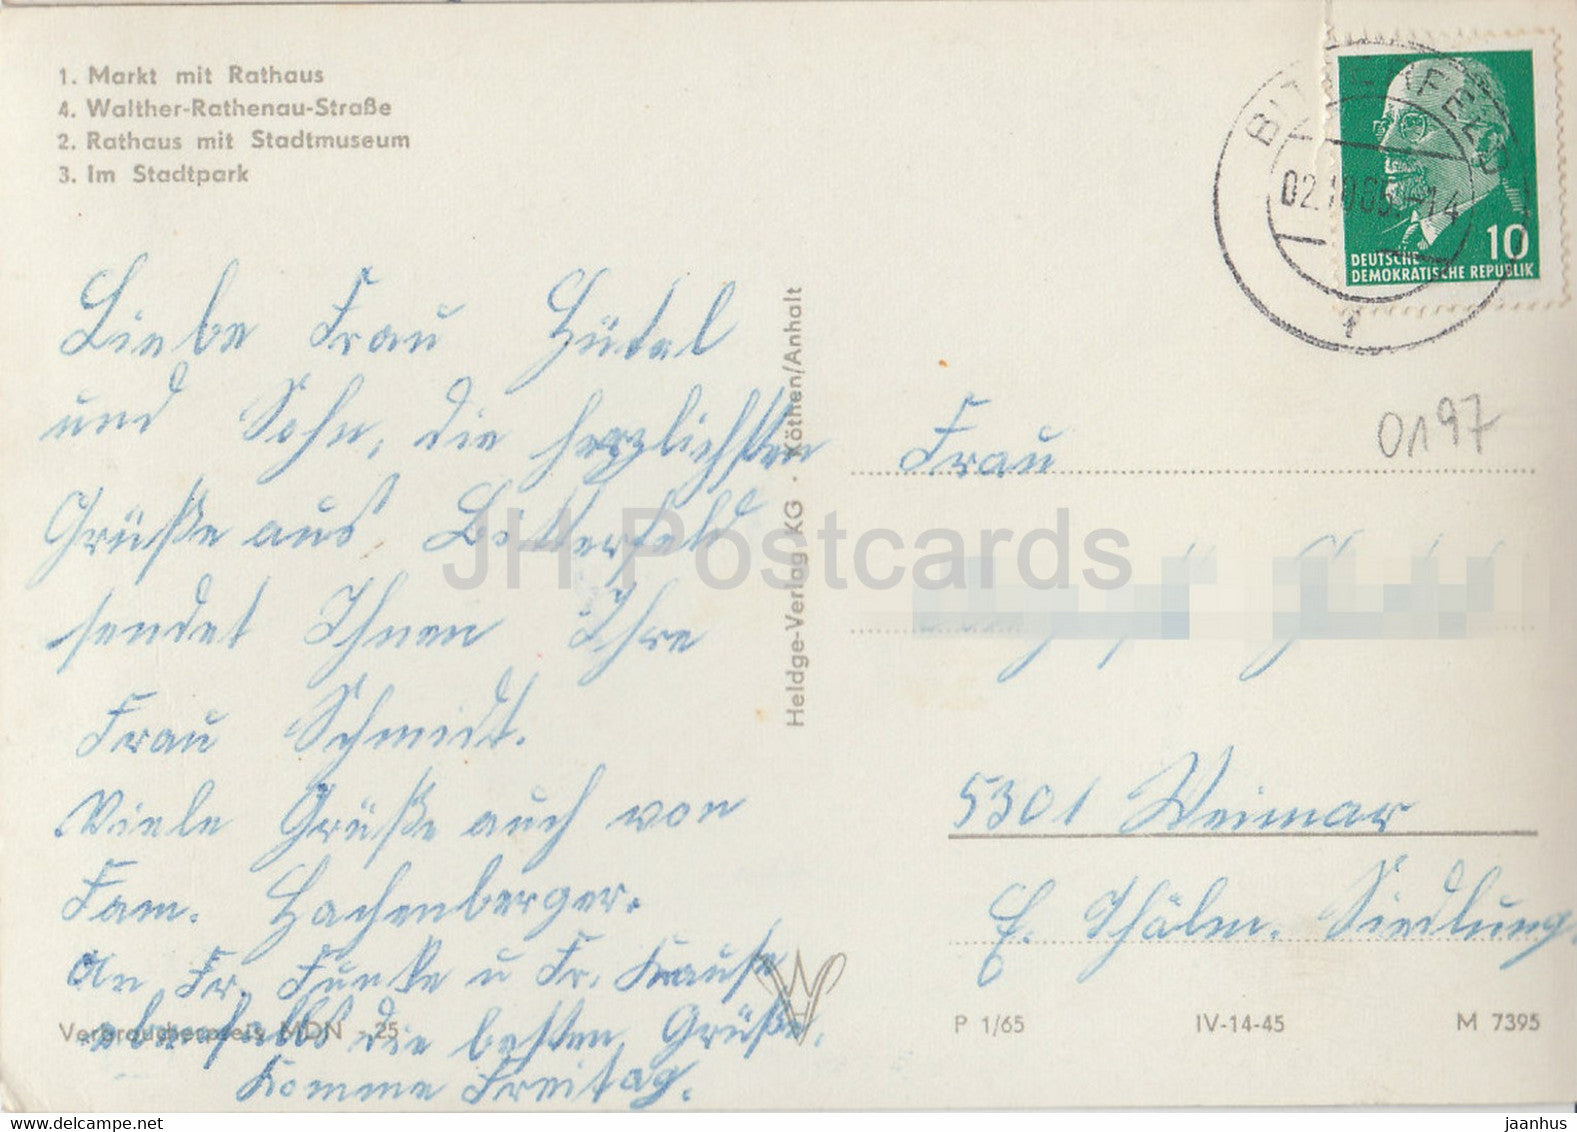 1. Markt mit Rathaus
4. Walther-Rathenau-Straße
2. Rathaus mit Stadtmuseum
3. Im Stadtpark
Liebe Frau Hütel
und Sohn, die herzlichsten
Grüße aus Bitterfeld
sendet Ihnen Ihre
Frau Schmidt.
Viele Grüße auch von
Fam. Hachenberger.
An Fr. Funke u Fr. Krause
ebenfalls die besten Grüße.
Komme Freitag.
Verbraucherpreis MDN -,25
Heldge-Verlag KG · Köthen/Anhalt
BITTERFELD
02.10.65.-14
1
10
DEUTSCHE
DEMOKRATISCHE REPUBLIK
0197
Frau
5301 Weimar
E. Thälm. Siedlung
P 1/65 IV-14-45 M 7395
JH Postcards
jaanhus
www.delcampe.net